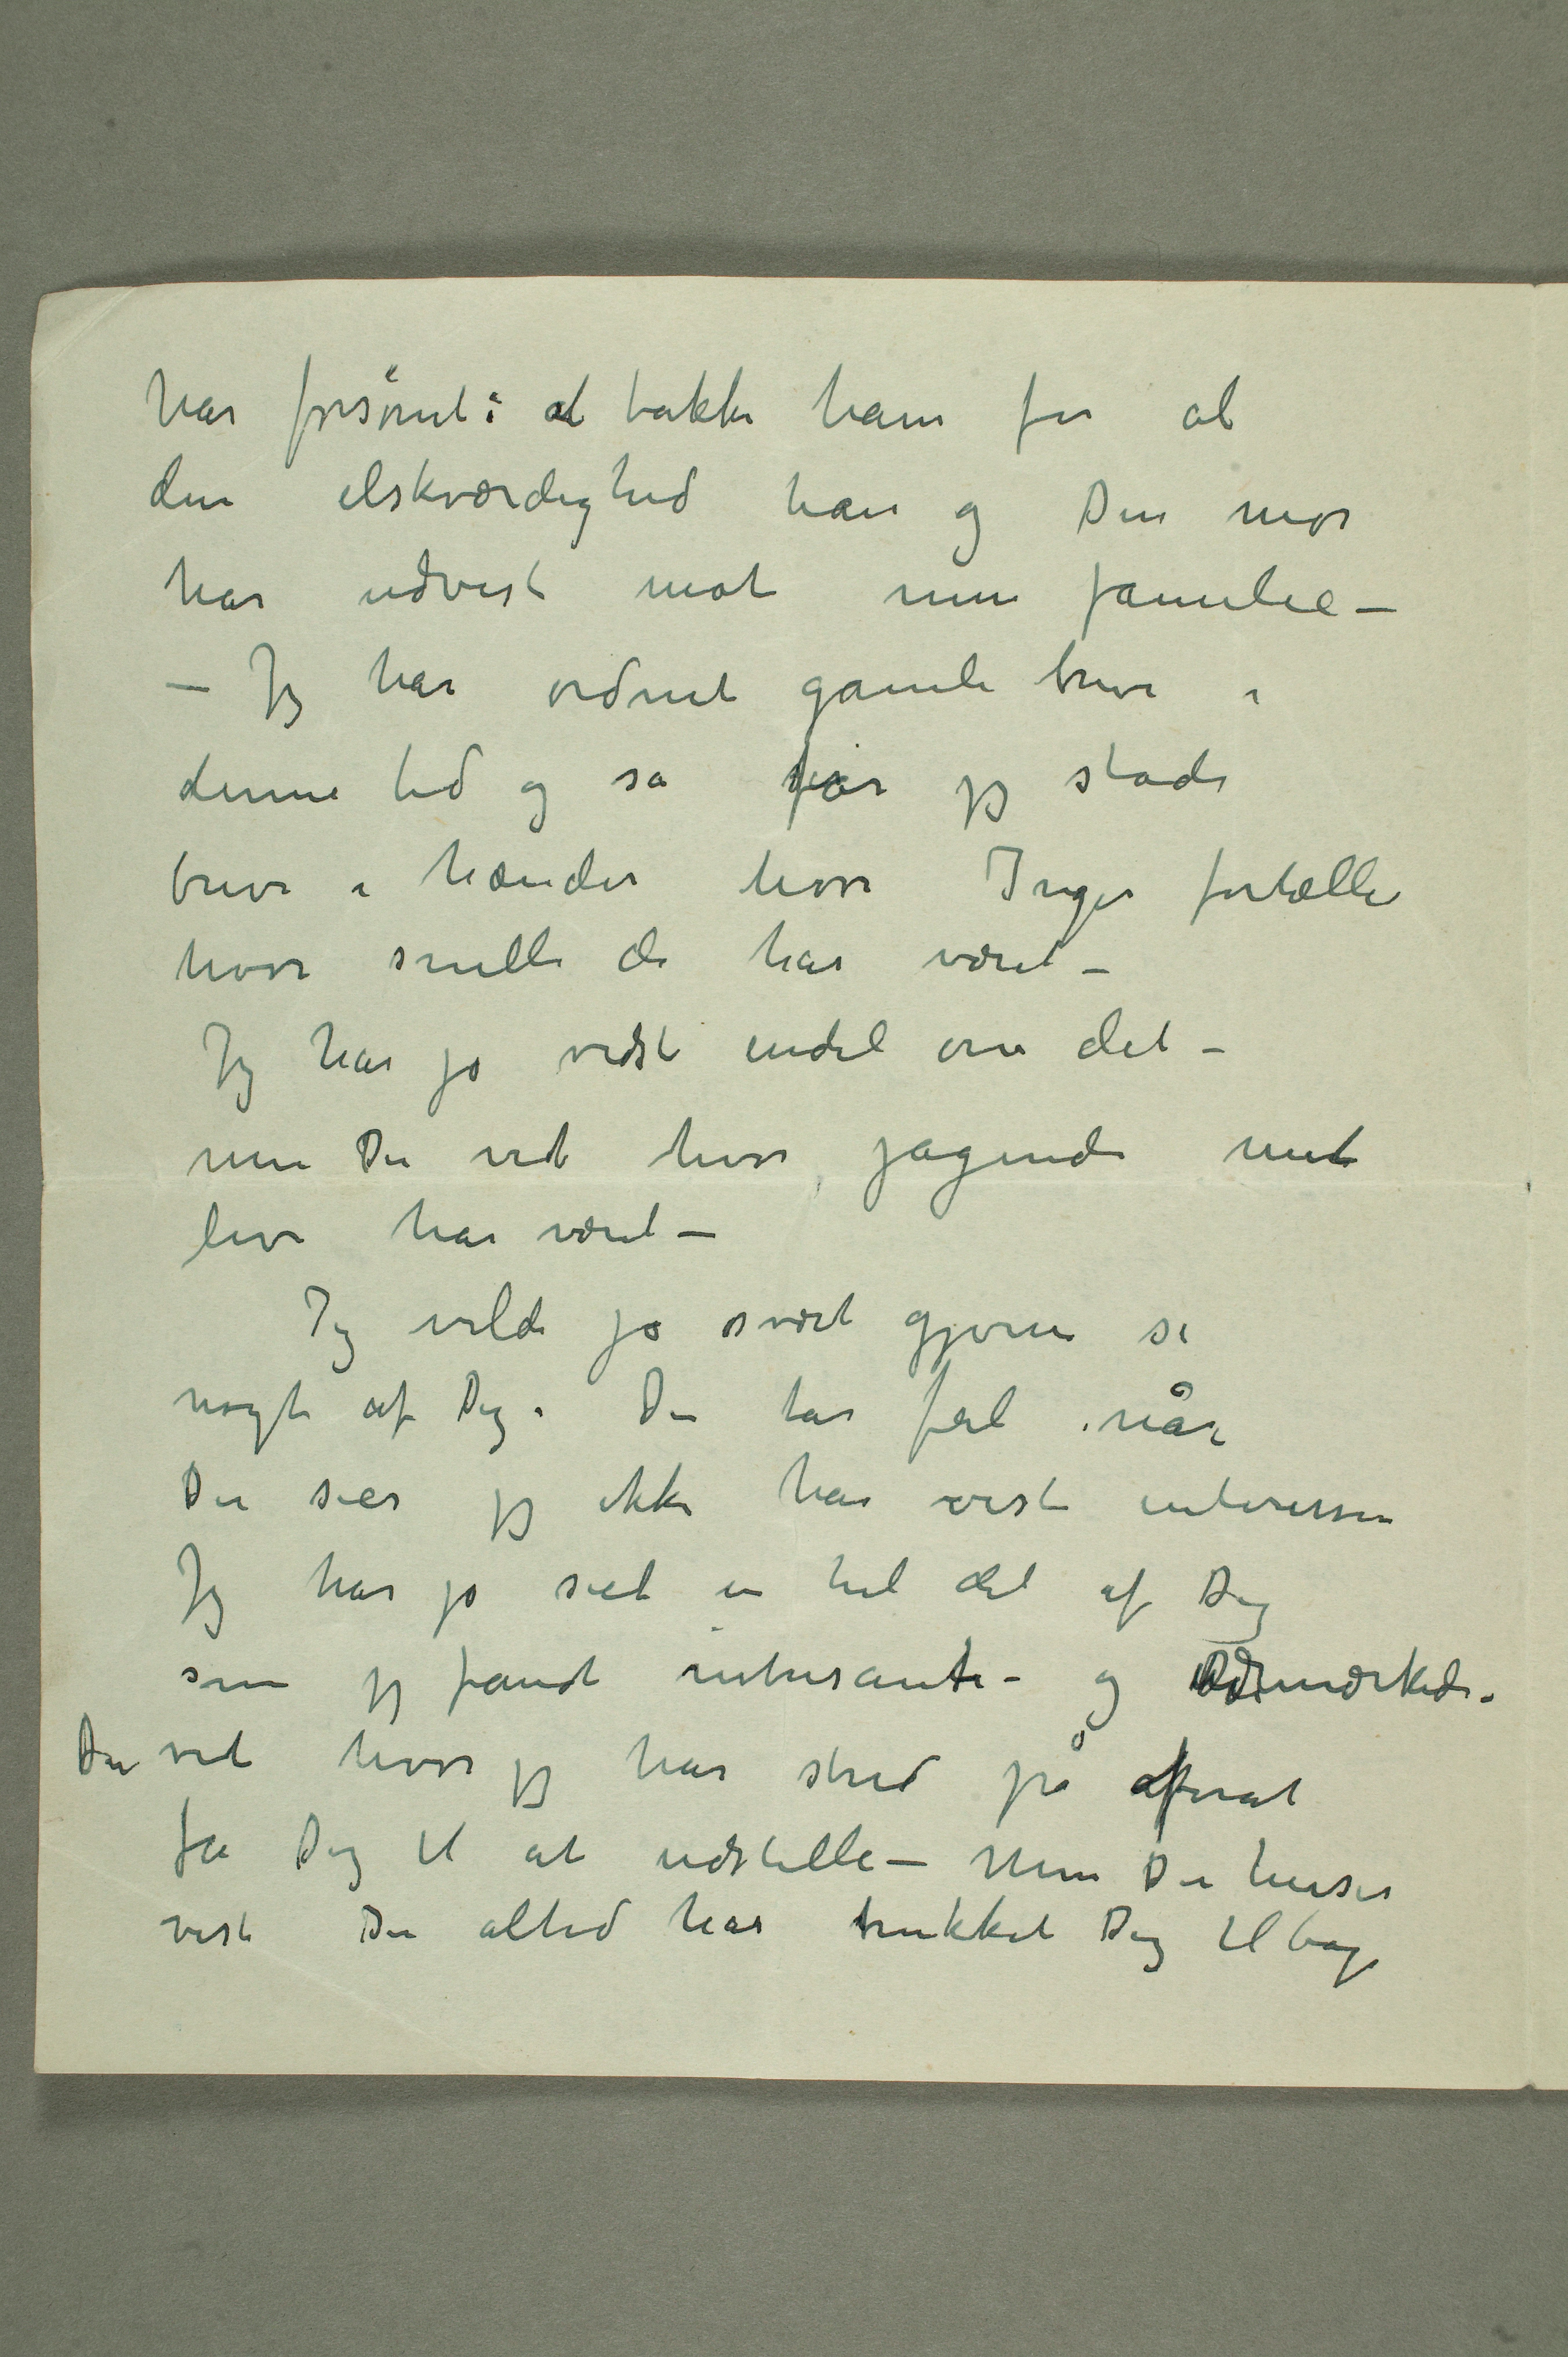 har forsømt i at takke ham for al
den elskværdighed han og Din mor
har udvist mot min familie –
– Jeg har ordnet gamle breve i
denne tid og så får jeg stadi
breve i hænder hvor Inger fortæller
hvor snille de har været –
Jeg har jo vidst endel om det –
men Du ved hvor jagende mit
liv har været –
Jeg vilde jo svært gjerne se
noget af Dig. Du tar feil når
Du sier jeg ikke har vist interesse
Jeg har jo seet en hel del af Dig
som jeg fandt interesante – og udmærkede.
Du ved hvor jeg har stred på forat
få Dig til at udstille – Men Du husker
vist Du altid har trukket Dig tilbage